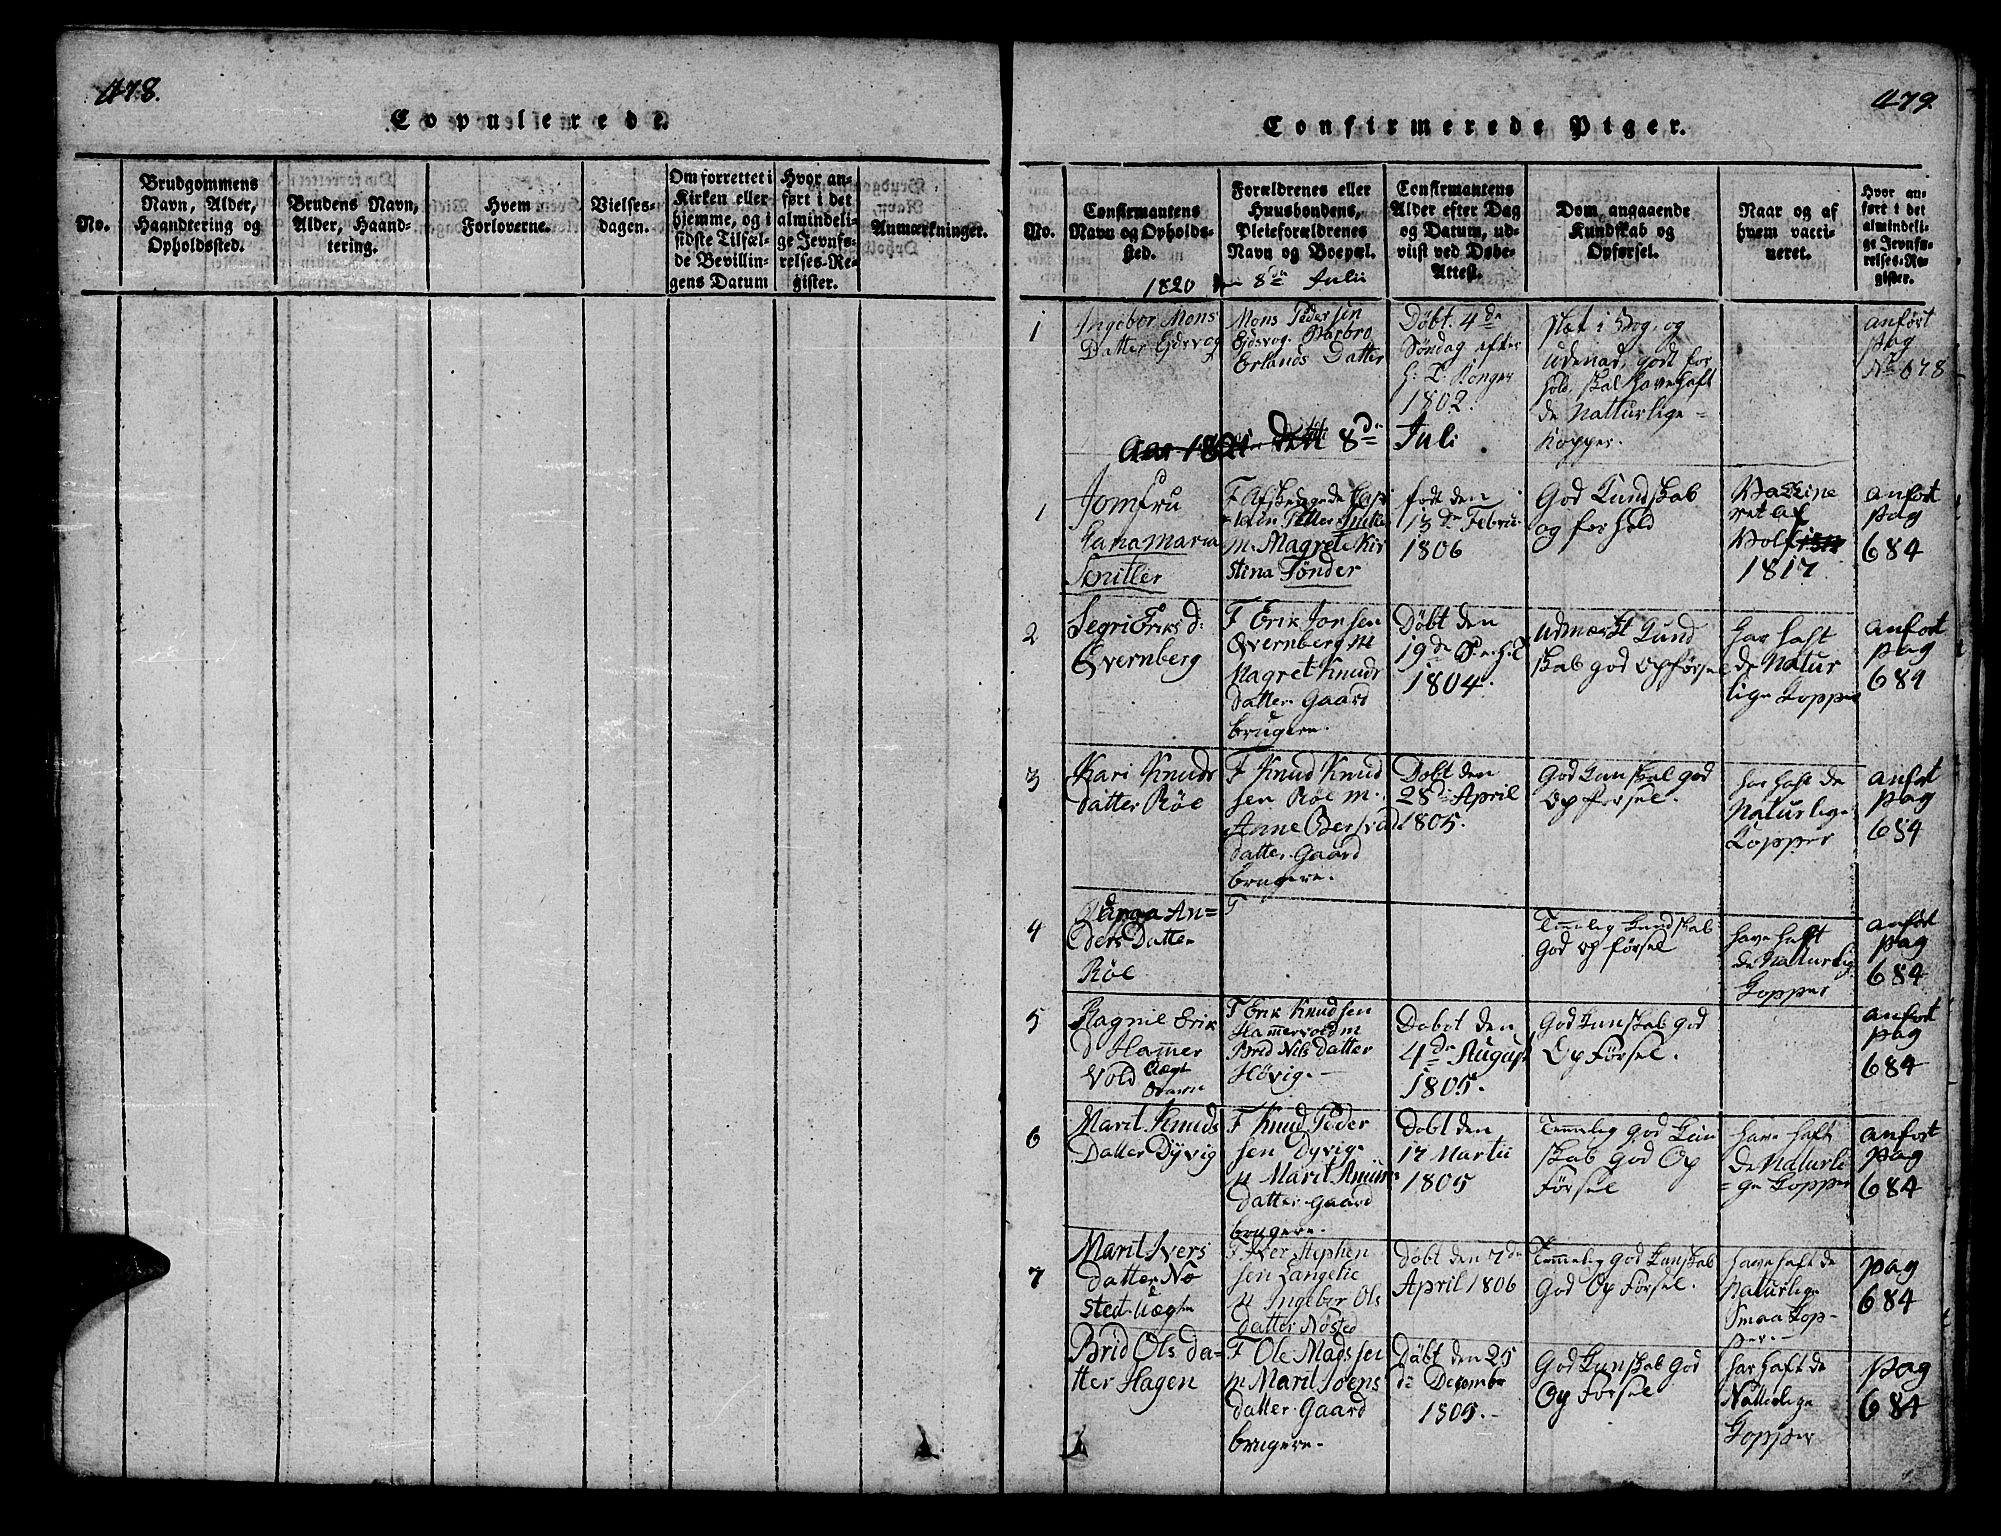 478.
Copulerede.
No.
Brudgommens
Navn, Alder,
Haandtering og
Opholdssted.
Brudens Navn,
Alder, Haand-
tering.
Hvem
Forloverne.
Vielses-
dagen.
Om forrettet i
Kirken eller
hjemme, og i
sidste Tilfæl-
de Bevillin-
gens Datum
Hvor an-
ført i det
almindeli-
ge Jevnfø-
relses-Re-
gister.
Anmærkninger.
479
Confirmerede Piger.
No.
Confirmantens
Navn og Opholds-
sted.
Forældrenes eller
Huusbondens,
Pleieforældrenes
Navn og Boepæl.
Confirmantens
Alder efter Dag
og Datum, ud-
viist ved Døbe-
Attest.
Dom angaaende
Kundskab og
Opførsel.
Naar og af
hvem vacci-
neret.
Hvor an-
ført i det
almindeli-
ge Jevnfø-
relses-Re-
gister.
1820 8de Julii
1
Ingebor Mons
Datter Ejdsvog
Mons Pedersen
Ejdsvog
Erlands Datter
Døbt 4de
Søndag efter
1802.
i Bog, og
udenad, godt for
hold, skal have haft
de Natturlige
Kopper.
anført
pag
No 678
8de Juli
1
Jomfru
Maria
F Afskedigede
Petter
M. Magrete Kir
stina Tønder
født den
13de Febru
1806
God Kundskab
og forhold
Vaksine
ret af
1817
anført
pag
684
2
Segri Eriks d:
Qvernberg
F Erik Jonsen
Qvernberg M
Magret Knuds
datter Gaard
brugere.
Døbt den
19de
1804.
udmerket Kund
skab god opførsel
har haft
de Natur
lige Kopper
anført
pag
684
3
Kari Knuds
datter Røe
F Knud Knud
sen Røe M.
Anne
datter Gaard
brugere.
Døbt den
28de April
1805.
God Kunskab god
Opførsel.
har haft de
Naturlige
Kopper
anført
pag
684
4
An=
ders Datter
Røe
F
Temmelig Kundskab
God opførsel
have haft
de Naturlig
Kopper
anført
pag
684
5
Ragnil Erik
d Hammer
vold
F Erik Knudsen
Hammervold M
Brid Nils datter
Høvig
Døbt den
4de August
1805.
God Kunskab god
Opførsel.
anført
pag
684
6
Marit Knuds
Datter Dyvig
F Knud Peder
sen Dyvig
M Marit
datter Gaard
brugere.
Døbt den
17 Martii
1805
Temmelig god Kun
skab god Op
førsel
have haft
de Naturli
=ge Kopper
anført
pag
684
7
Marit Ivers
datter Nø
sted
F Iver Stephen
sen Langelie
M Ingebor Ols
datter Nøsted
Døbt den 7de
April 1806
Temmelig god Kunskab
God Opførsel.
have haft de
Naturlige
Smaa Kop-
per.
pag
684
Brid Ols da-
tter Hagen
F Ole Madssen
M Marit Joens
datter Gaard
brugere.
Døbt den 25
de December
1805.
God Kunskab god
Opførsel
har haft de
Kopper
pag
684